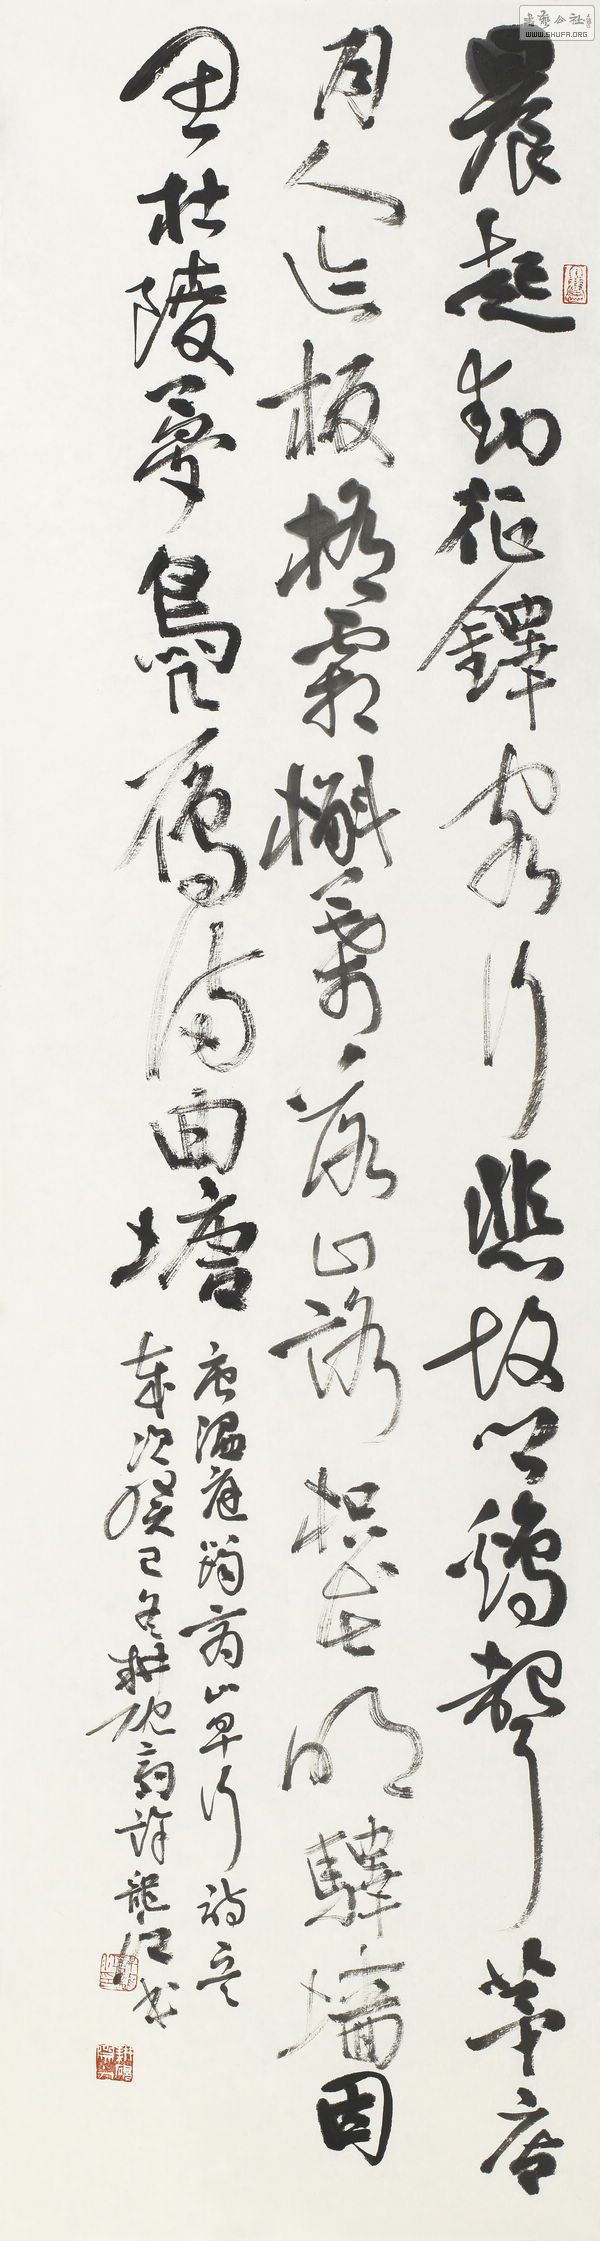 晨起動征鐸客行悲故乡鷄聲茅店
月人迹板橋霜槲葉落山路枳花明驛墙因
思杜陵夢鳧雁滿回塘
唐温庭筠商山早行詩意
歲次癸巳冬耕砚斋許龍江书
書藝公社
WWW.SHUFA.ORG